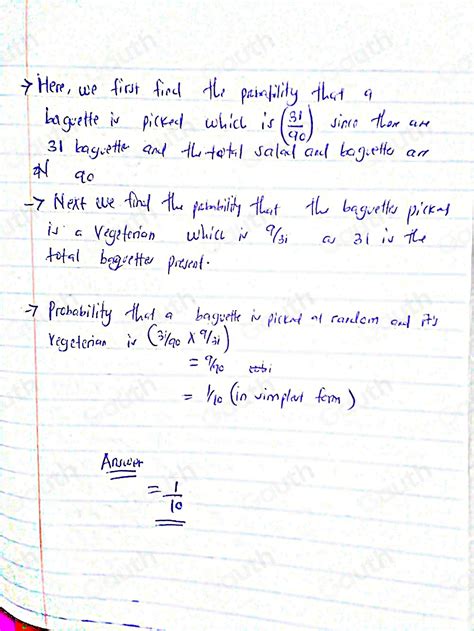 → Here, we first find the probability that a
baguette is picked which is (31/90) since there are
31 baguette and the total salad and baguettes are
90
→ Next we find the probability that the baguettes picked
is a Vegeterian which is 9/31 as 31 is the
total baguettes present.
→ Probability that a baguette is picked at random and it's
Vegeterian is (31/90 x 9/31)
= 9/90
= 1/10 (in simplest form)
Answer
= 1/10